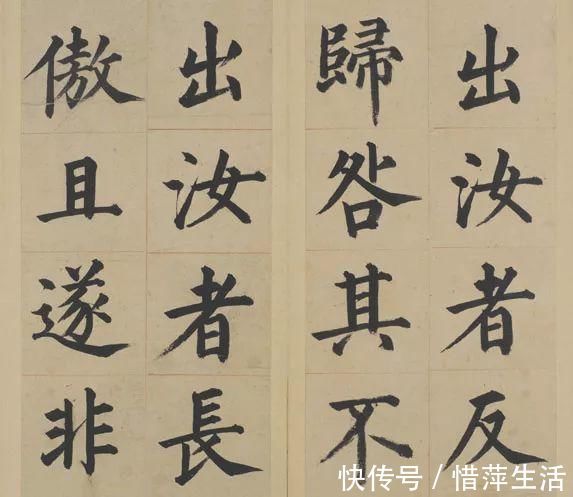 出汝者反
歸咎其不
出汝者長
傲且遂非
快传号/惜萍生活